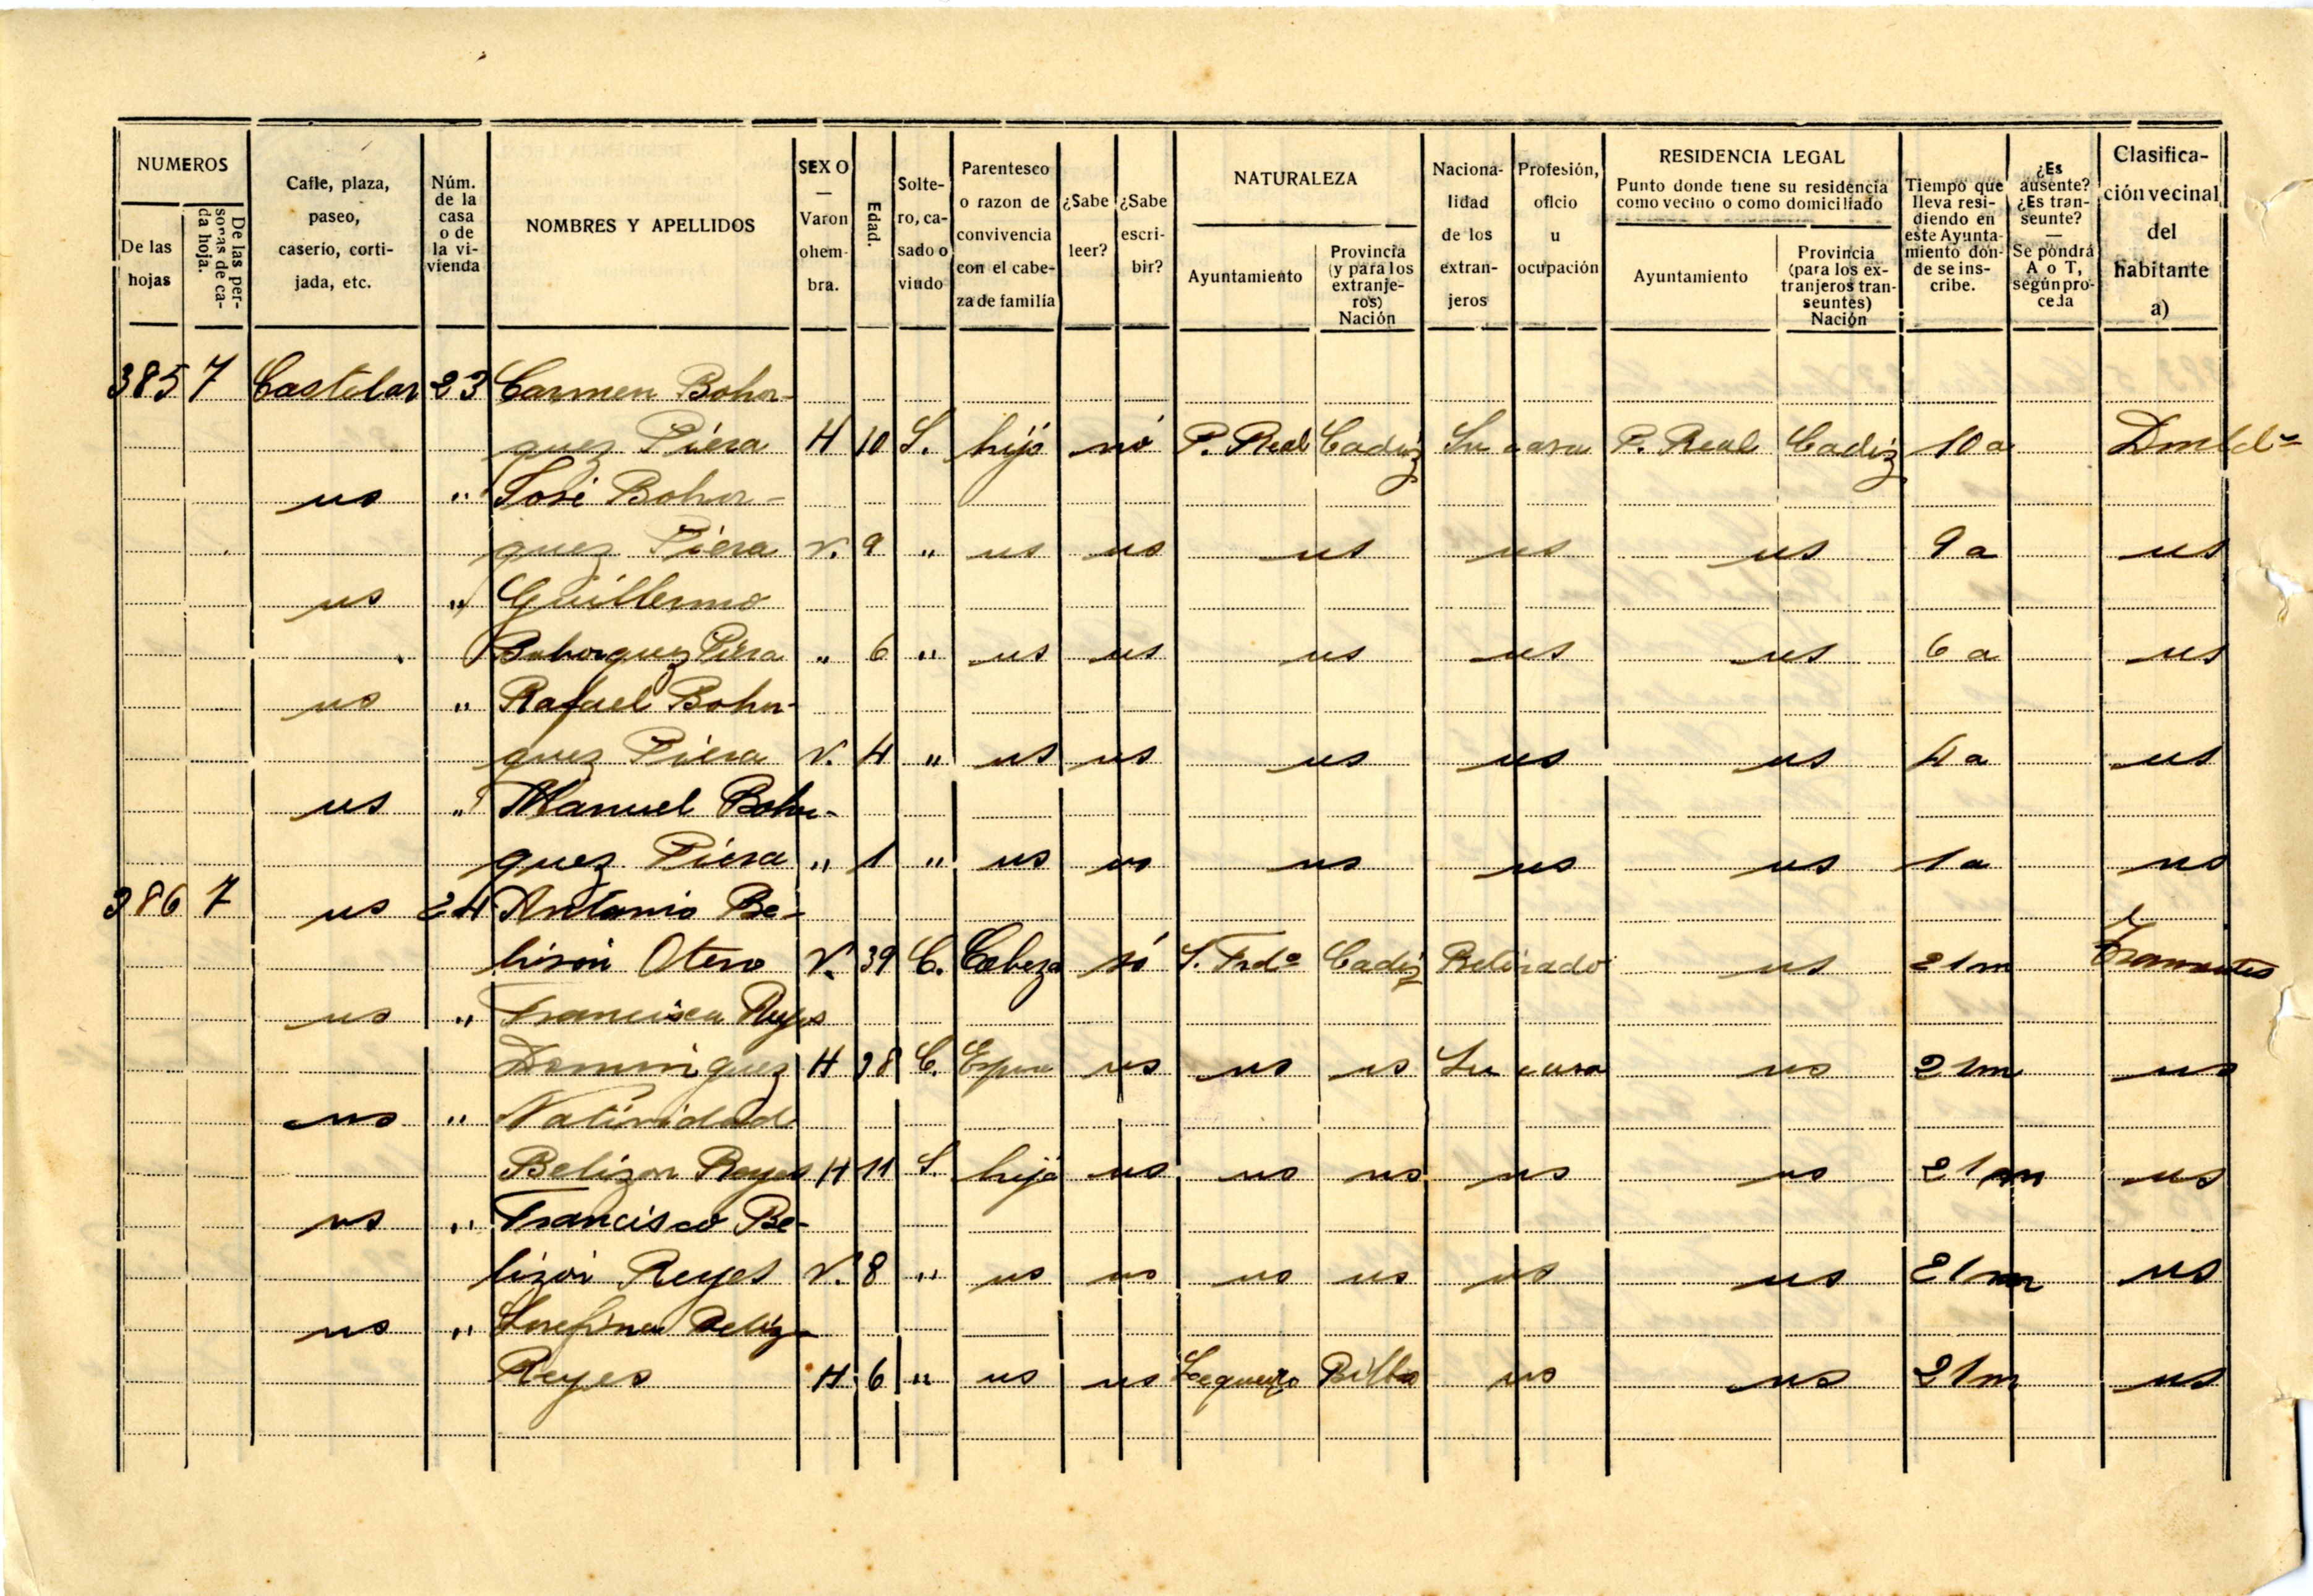 NUMEROS
De las hojas
De las personas de cada hoja.
Calle, plaza, paseo, caserío, cortijada, etc.
Núm. de la casa o de la vivienda
NOMBRES Y APELLIDOS
SEXO — Varon o hembra.
Edad.
Soltero, casado o viudo
Parentesco o razon de convivencia con el cabeza de familia
¿Sabe leer?
¿Sabe escribir?
NATURALEZA
Ayuntamiento
Provincia (y para los extranjeros) Nación
Nacionalidad de los extranjeros
Profesión, oficio u ocupación
RESIDENCIA LEGAL
Punto donde tiene su residencia como vecino o como domiciliado
Ayuntamiento
Provincia (para los extranjeros transeuntes) Nación
Tiempo que lleva residiendo en este Ayuntamiento donde se inscribe.
¿Es ausente? ¿Es transeunte? — Se pondrá A o T, según proceda
Clasificación vecinal del habitante a)
385 7 Castelar 23 Carmen Bohor-
quez Piera H 10 S. hija nó P. Real Cadiz Su casa P. Real Cadiz 10 a
us " José Bohor-
quez Piera V. 9 " us us us us us 9 a us
us " Guillermo
Bohorquez Piera " 6 " us us us us us 6 a us
us " Rafael Bohor-
quez Piera V. 4 " us us us us us 4 a us
us " Manuel Bohor-
quez Piera " 1 " us us us us us 1 a us
386 7 us 24 Antonio Be-
lizón Otero V. 39 C. Cabeza si S. Frdo Cadiz Retirado us 21 m
us " Francisca Reyes
Dominguez H 38 C. Espsa us us us Su casa us 21 m us
us " Natividad
Belizon Reyes H 11 S. hija us us us us us 21 m us
us " Francisco Be-
lizón Reyes V. 8 " us us us us us us 21 m us
us " Josefina Beliz-
Reyes H 6 " us us Bilbo us us 21 m us